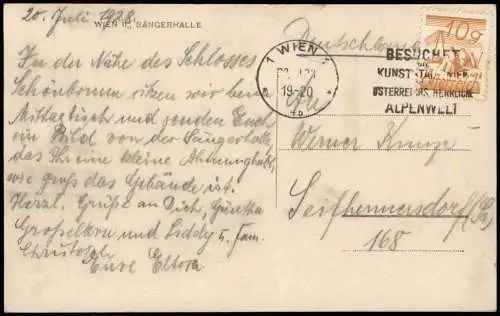 20. Juli 1928.
WIEN II., SÄNGERHALLE
In der Nähe des Schlosses
Schönbrunn sitzen wir beim
Mittagstisch und senden Euch
ein Bild von der Sängerhalle,
das Ihr eine kleine Ahnung habt,
wie groß das Gebäude ist.
Herzl. Grüße an Dich, Günther
Großeltern und Liddy u. Fam.
Christoph.
Eure Eltern
Deutschland
1 WIEN 1
19-20
BESUCHET
KUNSTSTADT WIEN
ÖSTERREICHS HERRLICHE
ALPENWELT
10g
Werner Kunze
Seifhennersdorf (Sa)
168